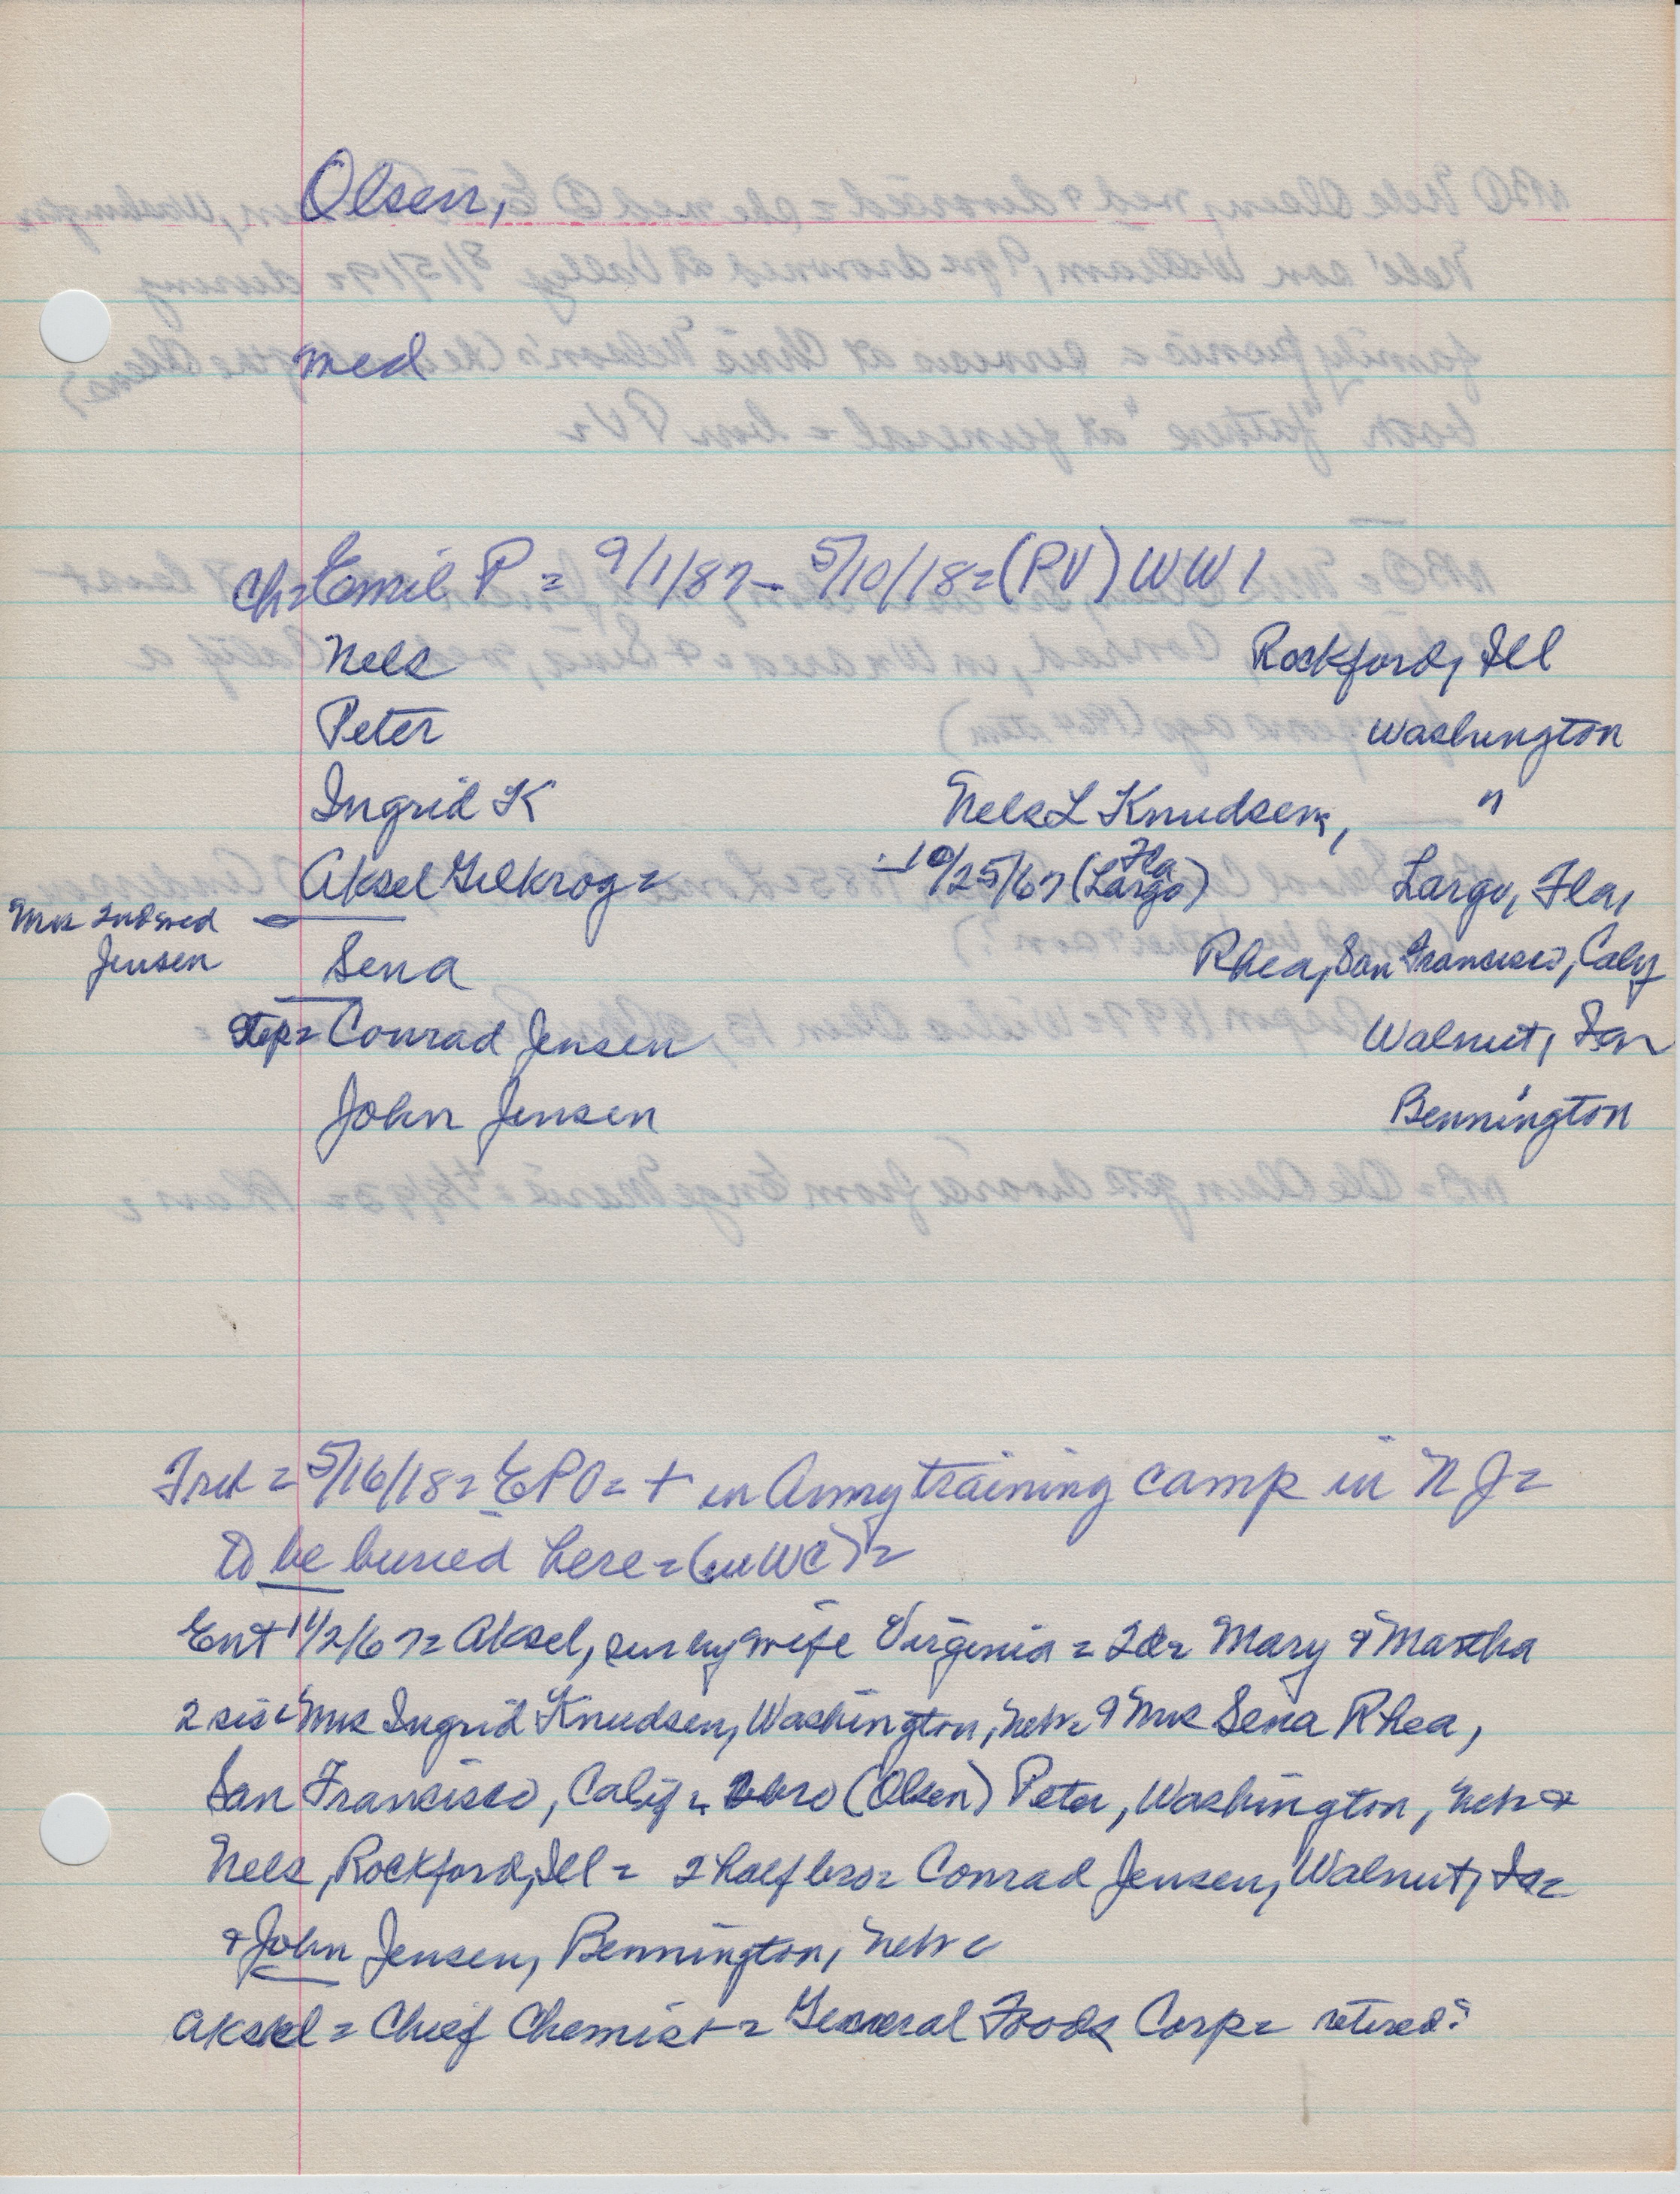 Olsen,
med
Ch= Emil P = 9/1/87 - 5/10/18 = (PV) WW1
Nels Rockford, Ill
Peter Washington
Ingrid K Nels L Knudsen, "
Aksel Gilkrog = - 10/25/67 (Largo Fla) Largo, Fla,
Mrs 2nd med
Jensen
Sena Rhea, San Francisco, Calif
Step = Conrad Jensen Walnut, Ia
John Jensen Bennington
5/16/18 = EPO = + in Army training camp in N J =
to be buried here =
Ent 11/2/67 = Aksel, sur by wife Virginia = 2 da Mary & Martha
2 sis = Mrs Ingrid Knudsen, Washington, Neb = & Mrs Sena Rhea,
San Francisco, Calif = 2 bro (Olsen) Peter, Washington, Neb = &
Nels, Rockford, Ill = 2 half bro = Conrad Jensen, Walnut, Ia =
& John Jensen, Bennington, Neb =
Aksel = Chief Chemist = General Foods Corp = retired?